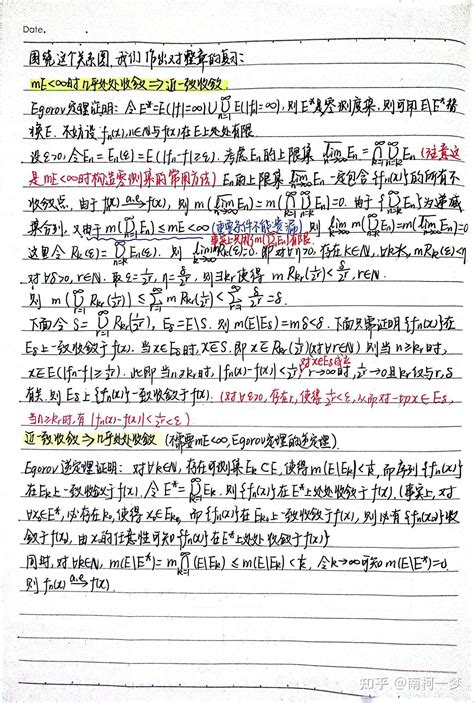 Date.
围绕这个关系图,我们作出对整章的复习:
mE<∞时 几乎处处收敛⇒近一致收敛.
Egorov定理证明: 令E*=E(|f|=∞)∪⋃_{n=1}^∞E(|f_n|=∞), 则E*是零测度集, 则可用E\E*替
换E. 不妨设f_n(x),n∈N与f(x)在E上处处有限.
设ε>0, 令E_n=E_n(ε)=E(|f_n-f|≥ε). 考虑E_n的上限集 \overline{lim}_{n→∞}E_n=⋂_{k=1}^∞⋃_{n=k}^∞E_n (注意这
是mE<∞时构造零测集的常用方法) E_n的上限集\overline{lim}_{n→∞}E_n一定包含{f_n(x)}的所有不
收敛点. 由于f_n(x)→^{a.e}f(x), 则m(\overline{lim}_{n→∞}E_n)=m(⋂_{k=1}^∞⋃_{n=k}^∞E_n)=0. 由于{⋃_{n=k}^∞E_n}为递减
集合列, 又由于m(⋃_{n=1}^∞E_n)≤mE<∞(重要条件不能遗漏)
事实上只用m(⋃_{n=1}^∞E_n)有限
这里令R_k(ε)=⋃_{n=k}^∞E_n(ε). 则lim_{k→∞}mR_k(ε)=0. 即对∀η>0, 存在K∈N, ∀k≥K, mR_k(ε)<η
对∀δ>0, r∈N. 取ε=1/2^r, η=δ/2^r, 则∃k_r使得 mR_{k_r}(1/2^r)<δ/2^r, r∈N.
则 m(⋃_{r=1}^∞R_{k_r}(1/2^r))≤∑_{r=1}^∞mR_{k_r}(1/2^r)<∑_{r=1}^∞δ/2^r=δ.
下面令S=⋃_{r=1}^∞R_{k_r}(1/2^r), E_δ=E\S. 则m(E\E_δ)=mS<δ. 下面只需证明{f_n(x)}在
E_δ上一致收敛于f(x). 当x∈E_δ时, x∉S. 即x∉R_{k_r}(1/2^r)(对∀r∈N) 则当n≥k_r时,
对x∈E_δ成立
x∈E(|f_n-f|<1/2^r). 此即当n≥k_r时, |f_n(x)-f(x)|<1/2^r, r→∞时, 1/2^r→0且k_r仅与r,δ
有关. 则E_δ上{f_n(x)}一致收敛于f(x). (对∀ε>0, 存在r, 使得1/2^r<ε, 从而对一切x∈E_δ,
当n≥k_r时, 有|f_n(x)-f(x)|<1/2^r<ε)
近一致收敛⇒几乎处处收敛 (不需要mE<∞, Egorov定理的逆定理).
Egorov逆定理证明: 对∀k∈N, 存在可测集E_k⊂E, 使得m(E\E_k)<1/k, 而序列{f_n(x)}
在E_k上一致收敛于f(x). 令E*=⋃_{k=1}^∞E_k, 则{f_n(x)}在E*上处处收敛于f(x). (事实上, 对
∀x_0∈E*, 必存在k_0, 使得x_0∈E_{k_0}, 而{f_n(x)}在E_{k_0}上一致收敛于f(x), 则必有{f_n(x_0)}收
敛于f(x_0), 由x_0的任意性可知{f_n(x)}在E*上处处收敛于f(x))
同时, 对∀k∈N, m(E\E*)=m⋂_{k=1}^∞(E\E_k)≤m(E\E_k)<1/k, 令k→∞可知m(E\E*)=0
则f_n(x)→^{a.e}f(x).
知乎 @南柯一梦